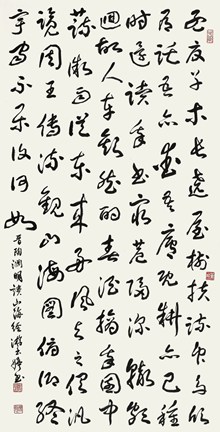 孟夏草木長遶屋樹扶疏衆鳥欣
有託吾亦愛吾廬既耕亦已種
時還讀我書窮巷隔深轍頗
迴故人車歡然酌春酒摘我園中
蔬微雨從東來好風與之俱汎
覽周王傳流觀山海圖俯仰終
宇宙不樂復何如
晉陶淵明讀山海經 書